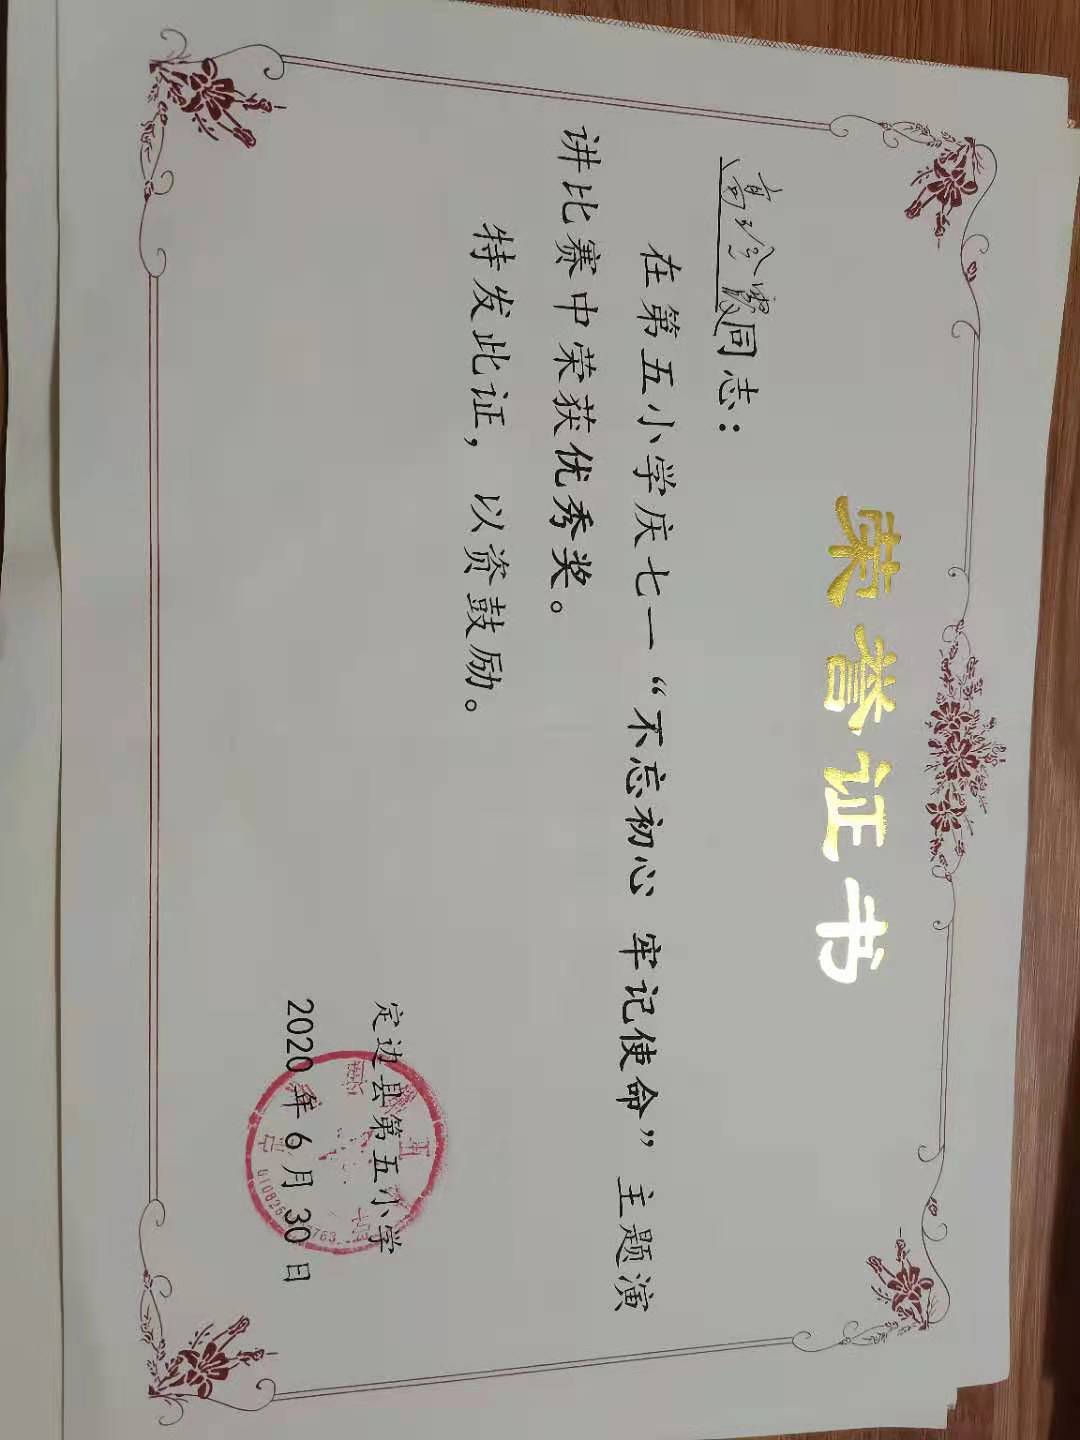 荣誉证书
高玲霞同志：
在第五小学庆七一“不忘初心 牢记使命”主题演
讲比赛中荣获优秀奖。
特发此证，以资鼓励。
定边县第五小学
2020年6月30日